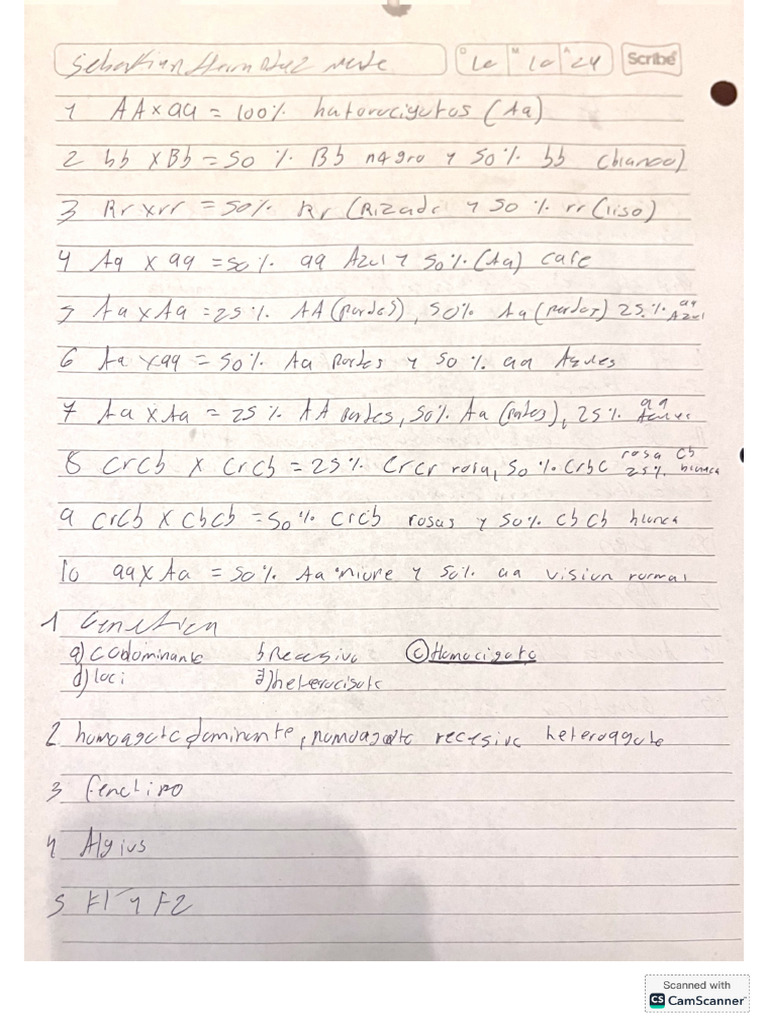 Sebastian Hernandez
D 16 M 10 A 24 Scribe
1 AA x aa = 100% hatorocigotos (Aa)
2 bb x Bb = 50 % Bb nagro y 50% bb (blanco)
3 Rr x rr = 50% Rr (Rizado y 50 % rr (liso)
4 Aa x aa = 50%. aa Azul y 50% (Aa) cafe
5 Aa x Aa = 25%. AA (pardos), 50% Aa (pardos) 25.% aa Azul
6 Aa x aa = 50%. Aa Pardos y 50 % aa Azules
7 Aa x Aa = 25 % AA pardes, 50% Aa (pardes), 25% aa
8 CrCb x CrCb = 25% CrCr rosa, 50 % CrbC rosa 25% Cb blanca
9 CrCb x CbCb = 50 % CrCb rosas y 50% CbCb blanca
10 aa x Aa = 50% Aa miope y 50% aa vision normal
1 Genetica
a) Codominante b Recesivo c) Homocigoto
d) loci heterocigoto
2 dominante, recesivo
3 fenotipo
4
5 F1 y F2
Scanned with
CS CamScanner